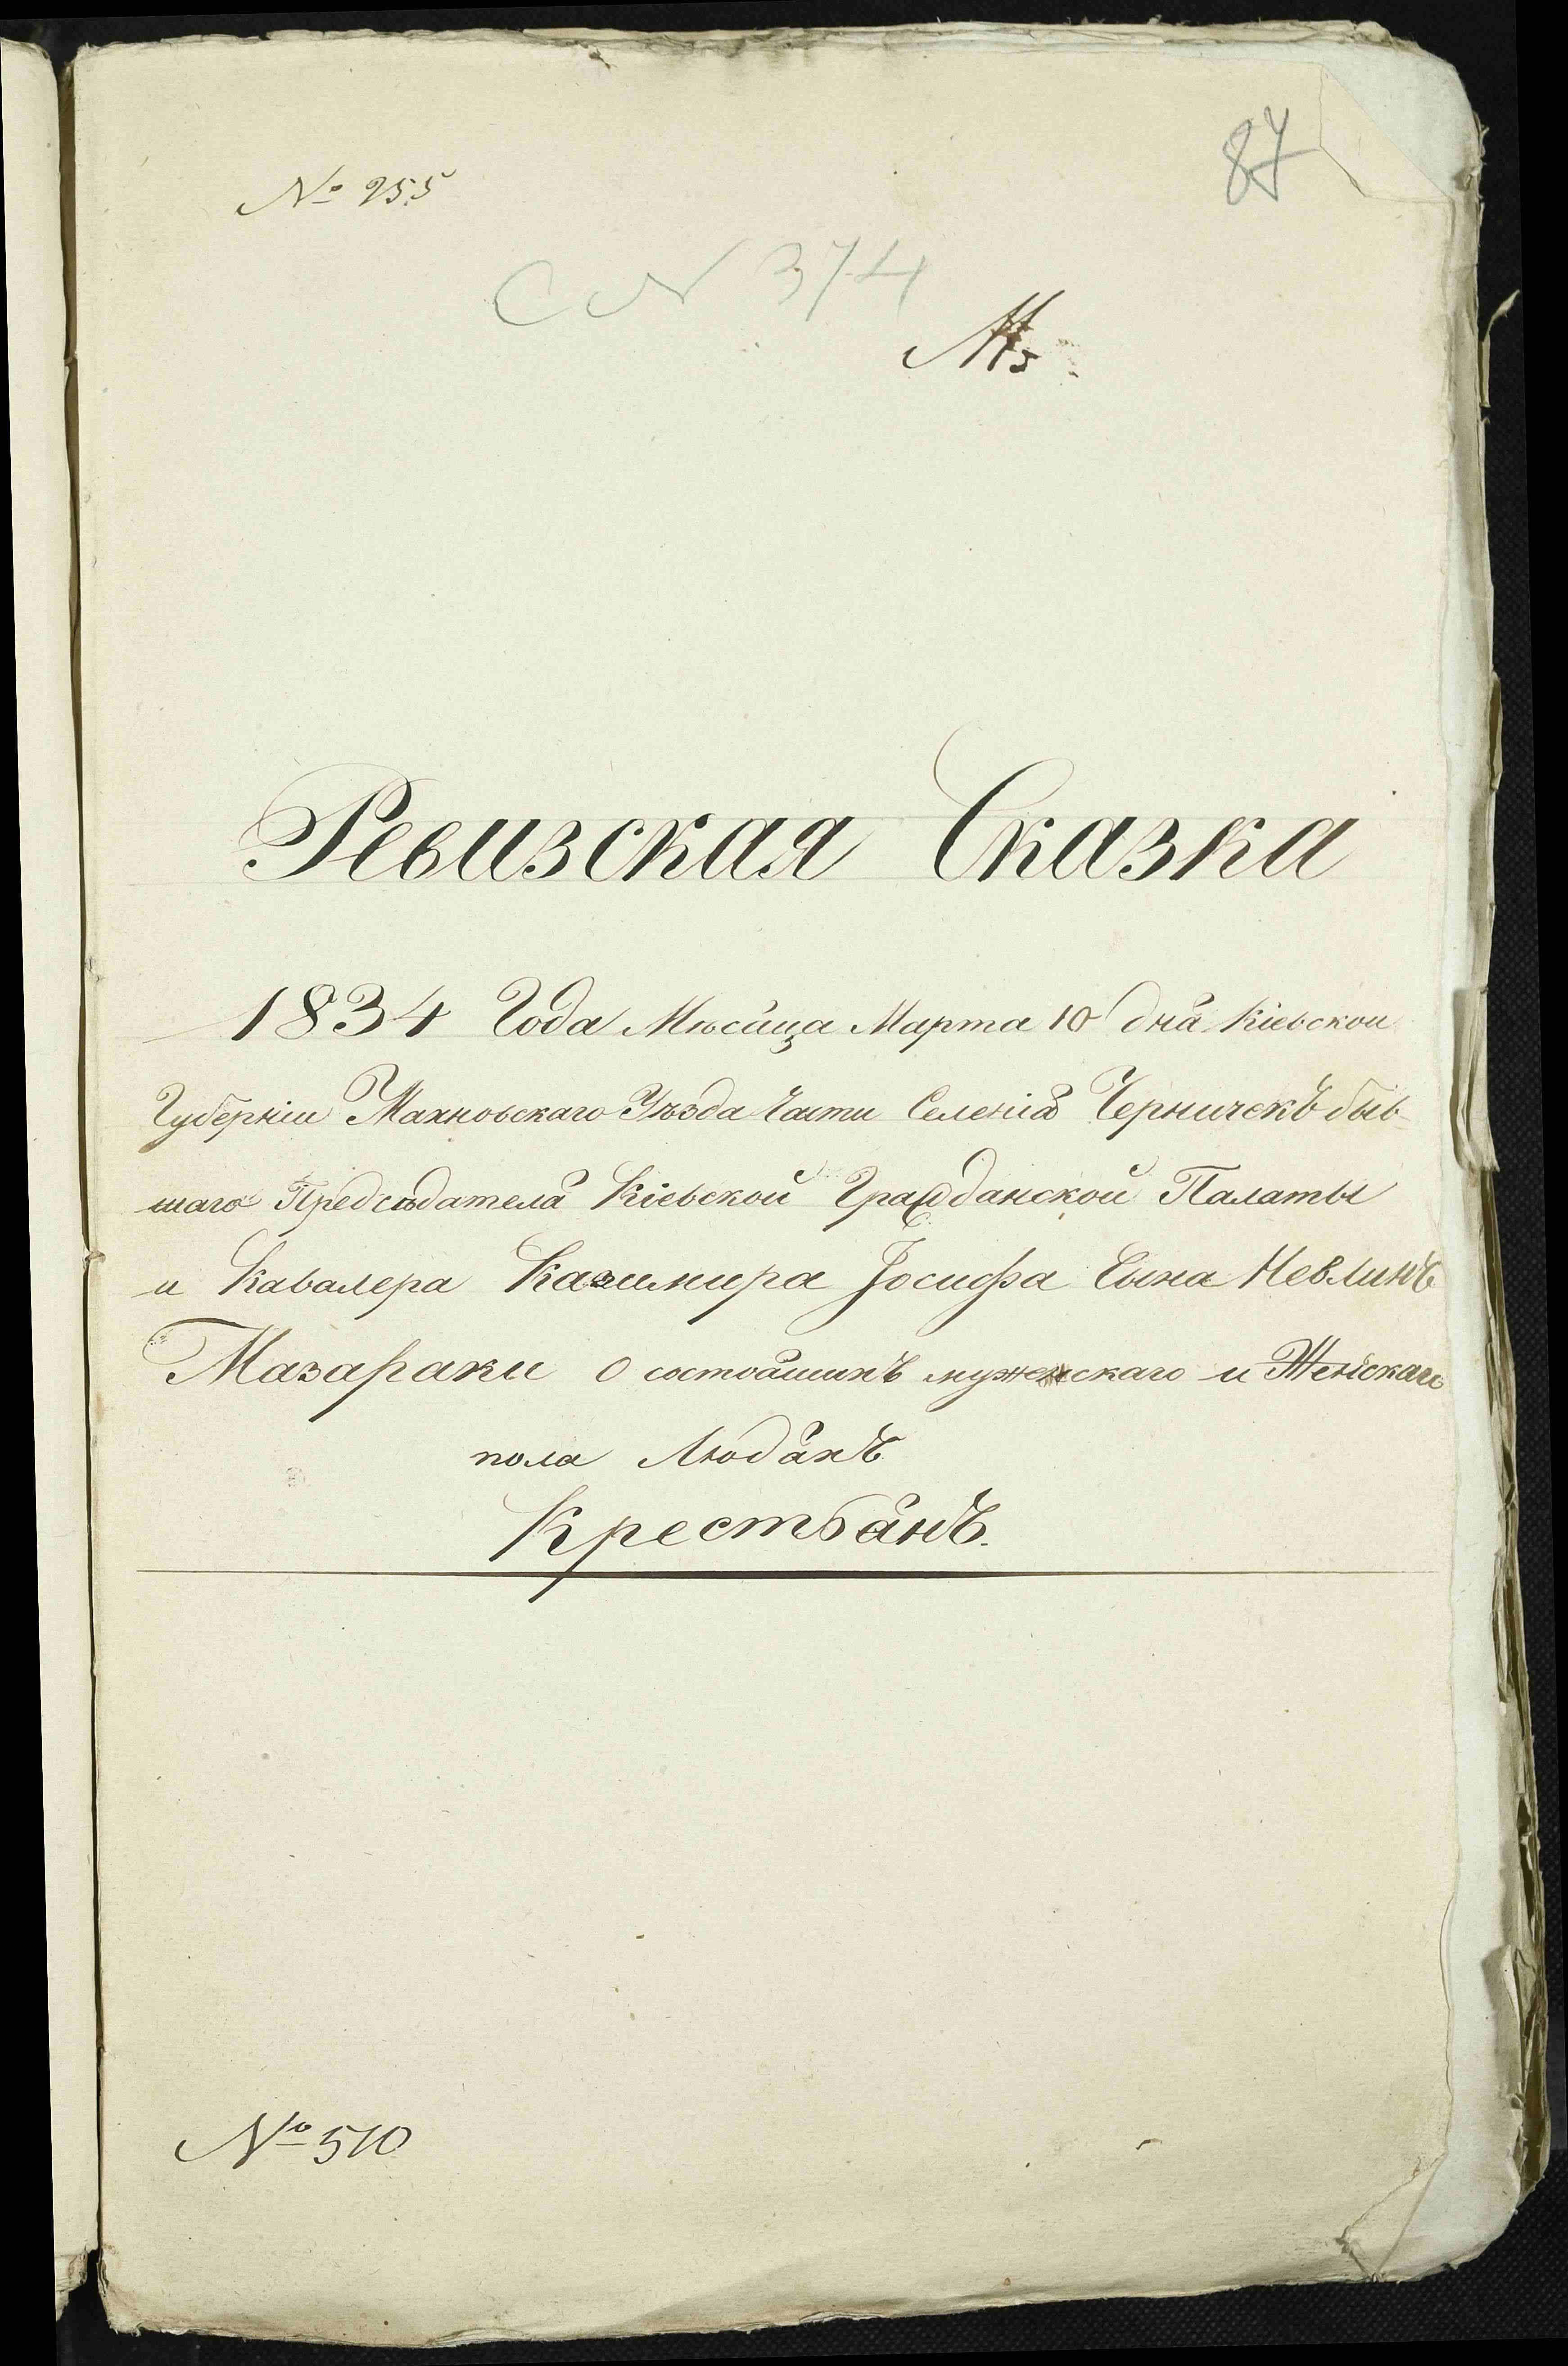 № 255
87
N 374
Ревизская Сказка
1834 Года Мѣсяца Марта 10 дня Кіевской
Губерніи Махновскаго Уѣзда Части Селенія Черничекъ быв-
шаго Предсѣдателя Кіевской Гражданской Палаты
и Кавалера Казимира Іосифа Сына Невлинъ
Мазараки о состоящихъ мужескаго и Женскаго
пола Людяхъ
Крестьянъ.
№ 510